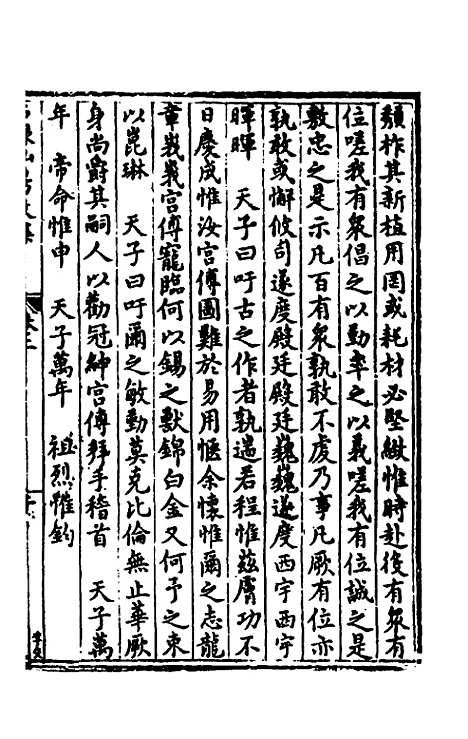 頽柞其新植用罔或耗材必堅緻惟時赴後有衆有
位嗟我有衆倡之以勤率之以義嗟我有位誠之是
敷忠之是示凡百有衆孰敢不虔乃事凡厥有位亦
孰敢或懈攸司遂度殿廷殿廷巍巍遂度西宇西宇
暉暉　天子曰吁古之作者孰遄若程惟兹膚功不
日慶成惟汝宮傅圖難於易用愜余懷惟爾之志龍
章峩峩宮傅寵臨何以錫之獸錦白金又何予之束
以崑琳　天子曰吁爾之敏勤莫克比倫無止華厥
身尚爵其嗣人以勸冠紳宮傅拜手稽首　天子萬
年　帝命惟申　天子萬年　祖烈惟鈞